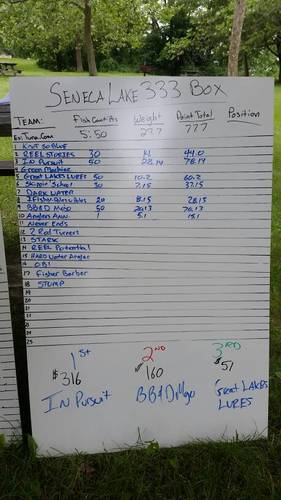 SENECA LAKE 333 BOX
TEAM: Fish Count/Pts Weight Point Total Position
Ex: Tuna.com 5:50 27.7 777
1 Knot So Blue
2 REEL STORIES 30 14. 44.0
3 IN Pursuit 50 28.14 78.14
4 Green Machine
5 Great LAKES LURES 50 10.2 60.2
6 30 7.15 37.15
7 DARK WATER
8 20 8.15 28.15
9 50 20.13 70.13
10 Anglers Ann. 5.1 15.1
11 Never Ends
12 2 Rod Turners
13 STARK
14 REEL Potential
15 HARD Water Angler
16 OBI
17 Fisher Barber
18 STUMP
19
20
21
22
23
24
25
1ST 2ND 3RD
$316 $160 $51
IN Pursuit Great LAKES
LURES